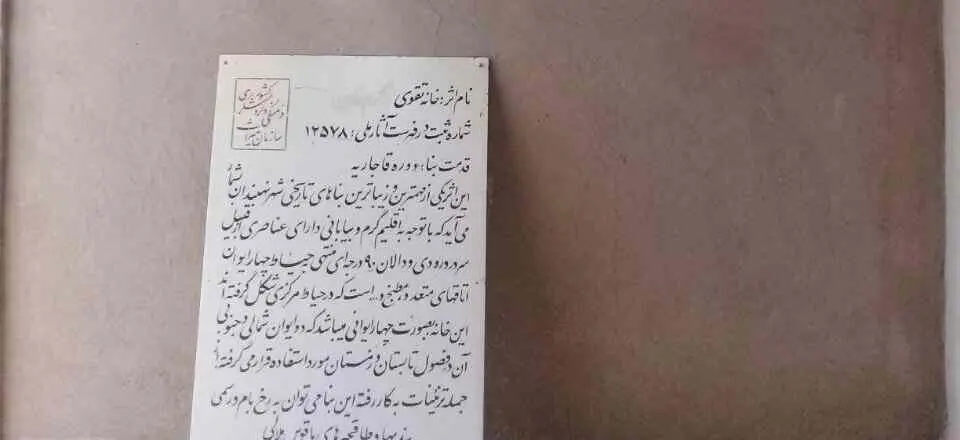 سازمان میراث
فرهنگی و گردشگری
کشور
نام اثر: خانه تقوی
شماره ثبت در فهرست آثار ملی: ۱۲۵۷۸
قدمت بنا: دوره قاجاریه
این اثر یکی از مهمترین و زیباترین بناهای تاریخی شهر نهبندان بشمار
می آید که با توجه به اقلیم گرم و بیابانی دارای عناصری از قبیل
سردر ورودی و دالان ۹۰ درجه ای منتهی به حیاط چهار ایوان
اتاقهای متعدد و مطبخ و.. است که در حیاط مرکزی شکل گرفته اند
این خانه بصورت چهار ایوانی میباشد که دو ایوان شمالی و جنوبی
آن در فصول تابستان و زمستان مورد استفاده قرار می گرفته؛ از
جمله تزئینات به کار رفته این بنا می توان به رخ بام و رسمی
بندیها و طاقچه های با قوس هلالی